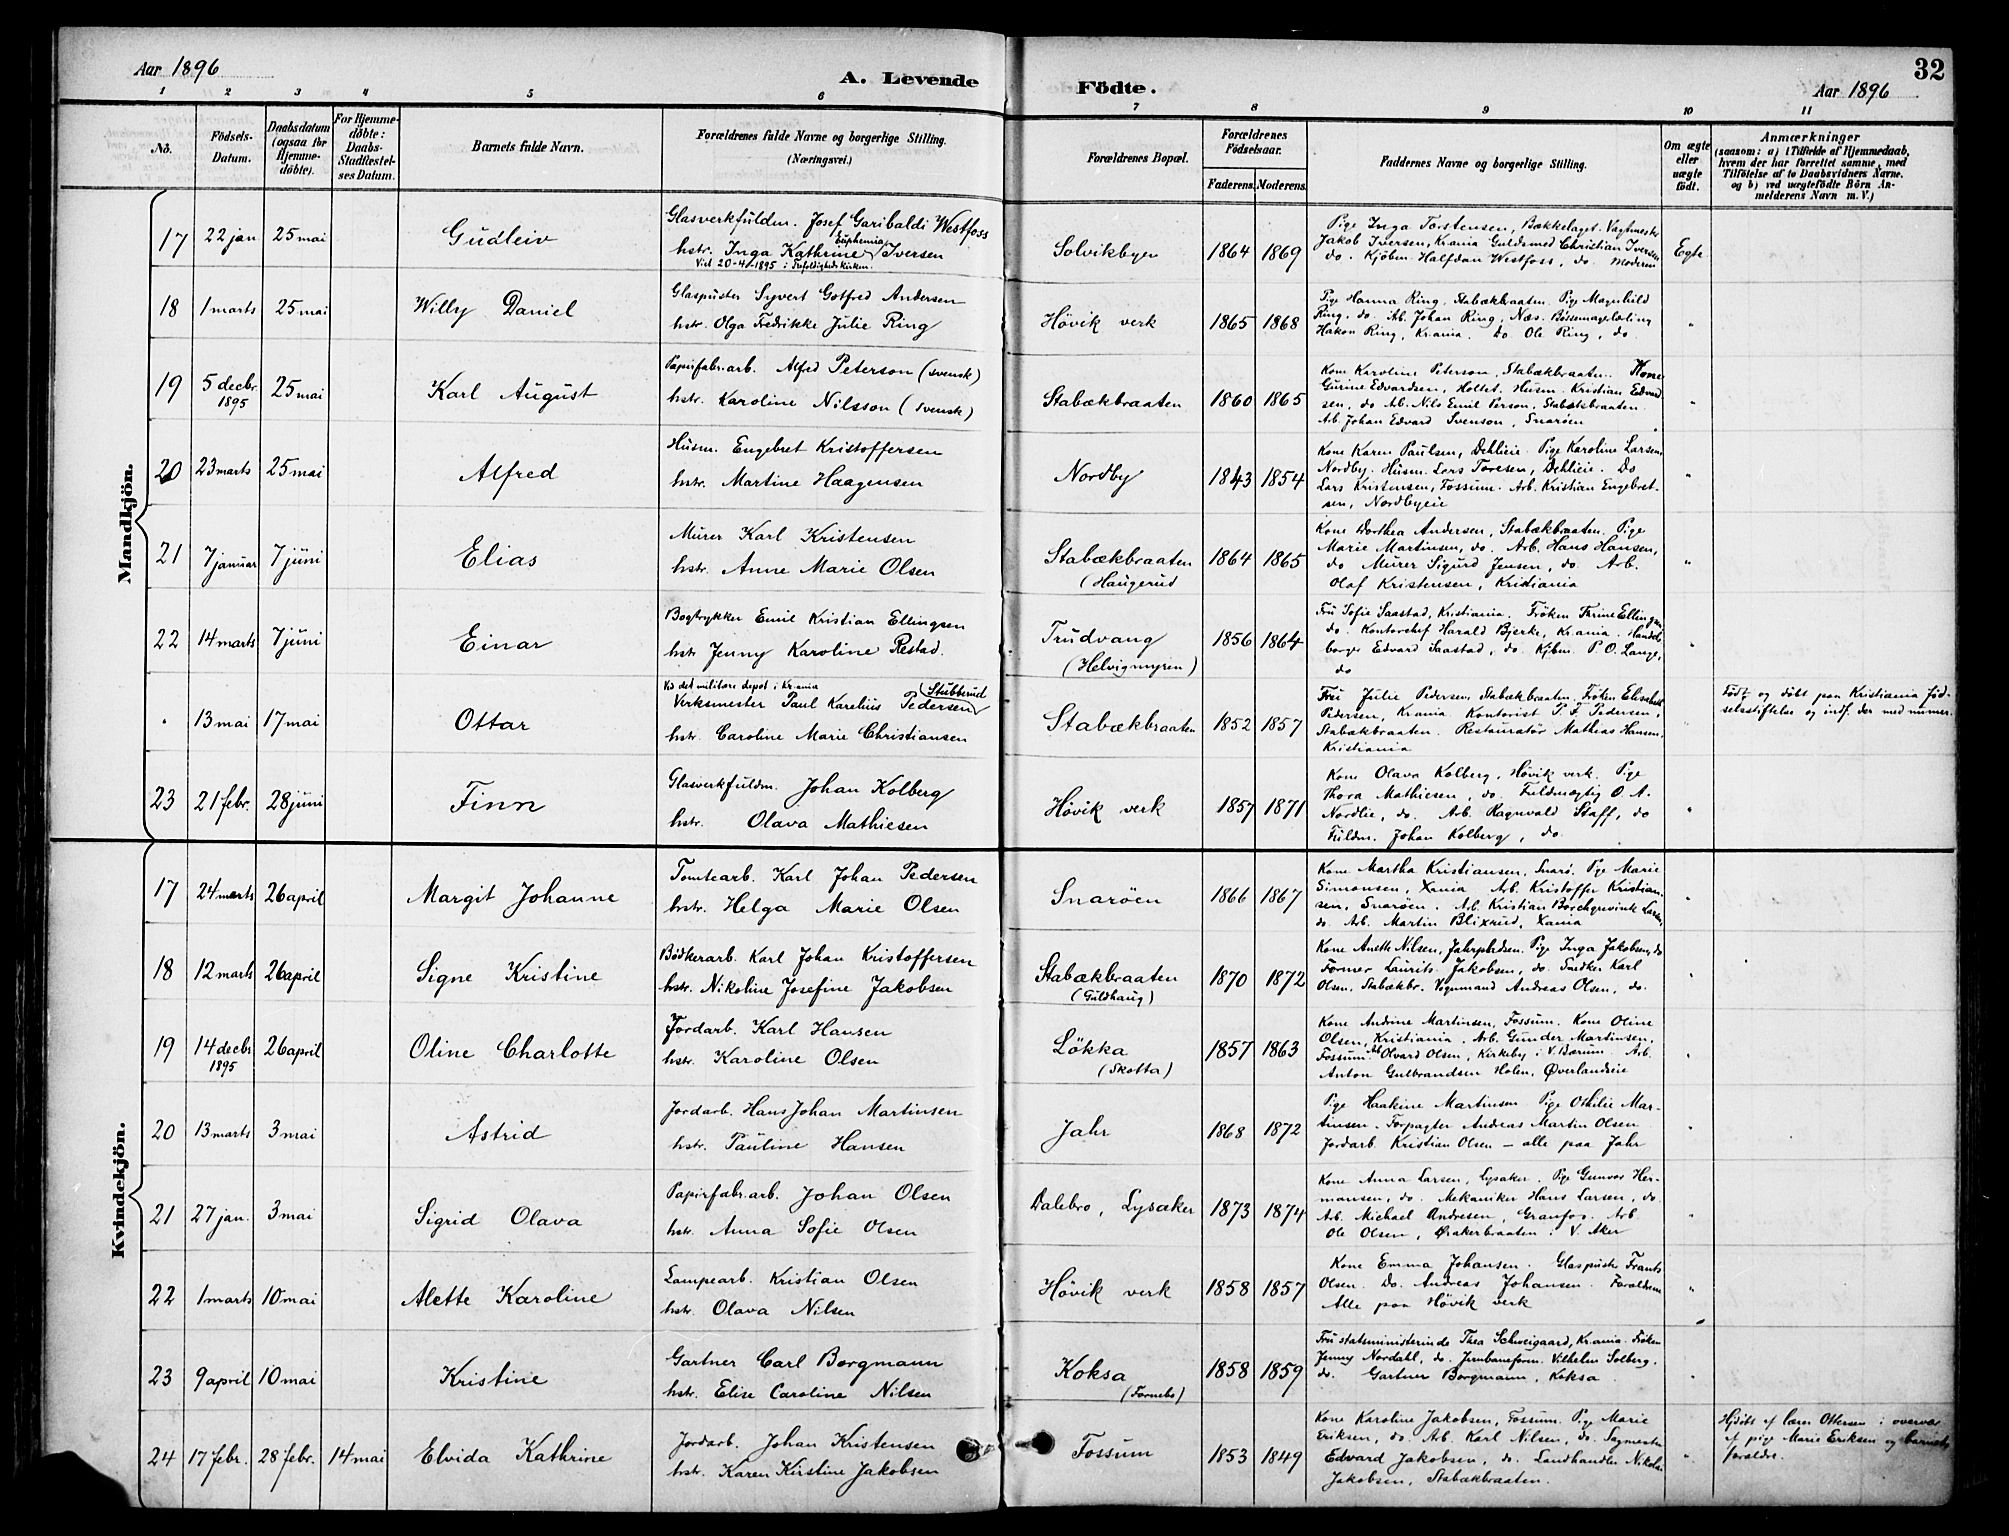 Aar 1896
A. Levende Födte.
Aar 1896
32
1 2 3 4 5 6 7 8 9 10 11
No.
Födsels-
Datum.
Daabsdatum
(ogsaa for
Hjemme-
døbte).
For Hjemme-
døbte:
Daabs-
Stadfæstel-
ses Datum.
Barnets fulde Navn.
Forældrenes fulde Navne og borgerlige Stilling.
(Næringsvei.)
Forældrenes Bopæl.
Forældrenes
Födselsaar.
Faderens. Moderens.
Faddernes Navne og borgerlige Stilling.
Om ægte
eller
uægte
födt.
Anmærkninger
(saasom: a) i Tilfælde af Hjemmedaab,
hvem der har forrettet samme, med
Tilföielse af to Daabsvidners Navne.
og b) ved uægtefödte Börn An-
melderens Navn m. V.)
Mandkjön.
17 22 jan 25 mai Gudleiv
Glasverkfuldm. Josef Garibaldi Westfoss
hstr. Inga Kathrine Euphemia Iversen
Viet 20-4-1895 i Trefoldighedskirken.
Solvikbyen 1864 1869
Pige Inga Torstensen, Bækkelaget. Vagtmester
Jakob Iversen, Krania Guldsmed Christian Iversen
do. Kjöbm. Halfdan Westfoss, do. Moderen
Egte
18 1 marts 25 mai Willy Daniel
Glaspuster Syvert Gotfred Andersen
hstr. Olga Fredrikke Julie Ring
Hövik verk 1865 1868
Pige Hanna Ring, Stabækbraaten. Pige Magnhild
Ring, do. Ab. Johan Ring, Næs. Bössemagerlæling
Hakon Ring, Krania. Do. Ole Ring, do
"
19 5 decbr. 1895 25 mai Karl August
Papirfabr.arb. Alfred Peterson (svensk)
hstr. Karoline Nilsson (svensk)
Stabækbraaten 1860 1865
Kone Karoline Peterson, Stabækbraaten. Kone
Gurine Edvardsen, Holtet. Husm. Kristian Edvard
sen, do Ab. Nils Emil Person, Stabækbraaten.
Arb. Johan Edvard Svenson, Snaröen
"
20 23 marts 25 mai Alfred
Husm. Engebret Kristoffersen
hstr. Martine Haagensen
Nordby 1843 1854
Kone Karen Paulsen, Dehlieie. Pige Karoline Larsen,
Nordby. Husm. Lars Toresen, Dehlieie. Do
Lars Kristensen, Fossum. Arb. Kristian Engebret-
sen, Nordbyeie
"
21 7 januar 7 juni Elias
Murer Karl Kristensen
hstr. Anne Marie Olsen
Stabækbraaten
(Haugerud 1864 1865
Kone Dorthea Andersen, Stabækbraaten. Pige
Marie Martinsen, do. Arb. Hans Hansen,
do Murer Sigurd Jensen, do. Arb.
Olaf Kristensen, Kristiania
"
22 14 marts 7 juni Einar
Bogtrykker Emil Kristian Ellingsen
hstr Jenny Karoline Restad.
Trudvang
(Helvigmyren) 1856 1864
Fru Sofie Saastad, Kristiania, Fröken Trine Ellingsen
do. Kontorchef Harald Bjerke, Krania. Handels
borger Edvard Saastad, do. Kjbm. P. O. Lange,
do
"
" 13 mai 17 mai Ottar
Ved det militære depot i Krania
Verksmester Paul Karelius Pedersen (Stubberud
hstr. Caroline Marie Christiansen
Stabækbraaten 1852 1857
Fru Julie Pedersen, Stabækbraaten. Fröken Elisabeth
Pedersen, Krania Kontorist P. F. Pedersen,
Stabækbraaten. Restauratør Mathias Hansen,
Kristiania
"
Födt og döbt paa Kristiania Föd-
selsstiftelse og indf. der med numer.
23 21 febr. 28 juni Finn
Glasverkfuldm. Johan Kolberg
hstr. Olava Mathiesen
Hövik verk 1857 1871
Kone Olava Kolberg, Hövik verk. Pige
Thora Mathiesen, do. Fuldmægtig O. A.
Nordlie, do. Arb. Ragnvald Staff, do
Fuldm. Johan Kolberg, do.
"
Kvindekjön.
17 24 marts 26 april Margit Johanne
Tomtearb. Karl Johan Pedersen
hstr. Helga Marie Olsen
Snaröen 1866 1867
Kone Martha Kristiansen, Snarö. Pige Marie
Simonsen, Xania Arb. Kristoffer Kristian-
sen, Snaröen. Arb. Kristian Borchgrevink Larsen,
do. Arb. Martin Blixrud, Xania
"
18 12 marts 26 april Signe Kristine
Bødkerarb. Karl Johan Kristoffersen
hstr. Nikoline Josefine Jakobsen
Stabækbraaten
(Guldhaug) 1870 1872
Kone Anette Nilsen, Jahrpladsen. Pige Inga Jakobsen, do
Former Laurits Jakobsen, do. Snedker Karl
Olsen, Stabækbr. Vognmand Andreas Olsen, do.
"
19 14 decbr 1895 26 april Oline Charlotte
Jordarb. Karl Hansen
hstr. Karoline Olsen
Lökka
(Skotta) 1857 1863
Kone Andrine Martinsen, Fossum. Kone Oline
Olsen, Kristiania. Arb. Gunder Martinsen,
Fossum Ab. Olvard Olsen, Kirkeby i V. Bærum. Arb.
Anton Gulbrandsen Holen, Øverlandseie
"
20 13 marts 3 mai Astrid
Jordarb. Hans Johan Martinsen
hstr. Pauline Hansen
Jahr 1868 1872
Pige Haakine Martinsen Pige Othilie Mar-
tinsen. Forpagter Andreas Martin Olsen
Jordarb. Kristian Olsen — alle paa Jahr
"
21 27 jan. 3 mai Sigrid Olava
Papirfabr.arb. Johan Olsen
hstr. Anna Sofie Olsen
Dalebro, Lysaker 1873 1874
Kone Anna Larsen, Lysaker. Pige Gunvor Her-
mansen, do. Mekaniker Hans Larsen, do.
Arb. Michael Andresen, Granfos. Arb.
Ole Olsen, Ørakerbraaten i V. Aker
"
22 1 marts 10 mai Alette Karoline
Lampearb. Kristian Olsen
hstr. Olava Nilsen
Hövik verk 1858 1857
Kone Emma Johansen. Glaspuster Frants
Olsen. Do. Andreas Johansen. Forældrene
Alle paa Hövik verk
"
23 9 april 10 mai Kristine
Gartner Carl Borgmann
hstr. Elise Caroline Nilsen
Koksa
(Fornebo) 1858 1859
Fru statsministerinde Thea Schweigaard, Krania. Fröken
Jenny Nordahl, do. Jernbaneform. Vilhelm Solberg,
do. Gartner Borgmann, Koksa
"
24 17 febr. 28 febr. 14 mai Elvida Kathrine
Jordarb. Johan Kristensen
hstr. Karen Kirstine Jakobsen
Fossum 1853 1849
Kone Karoline Jakobsen, Fossum. Pige Marie
Eriksen, do. Arb. Karl Nilsen, do. Sagmester
Edvard Jakobsen, do. Landhandler Nikolai
Jakobsen, Stabækbraaten.
"
Hjdöbt af lærer Ottersen i overvær
af pige Marie Eriksen og barnets
forældre.